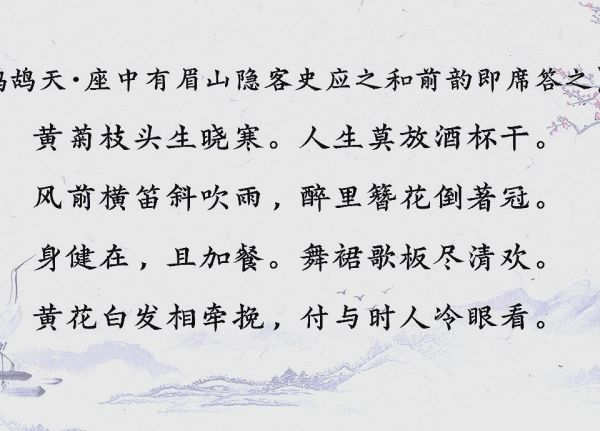 鹧鸪天·座中有眉山隐客史应之和前韵即席答之
黄菊枝头生晓寒。人生莫放酒杯干。
风前横笛斜吹雨，醉里簪花倒著冠。
身健在，且加餐。舞裙歌板尽清欢。
黄花白发相牵挽，付与时人冷眼看。